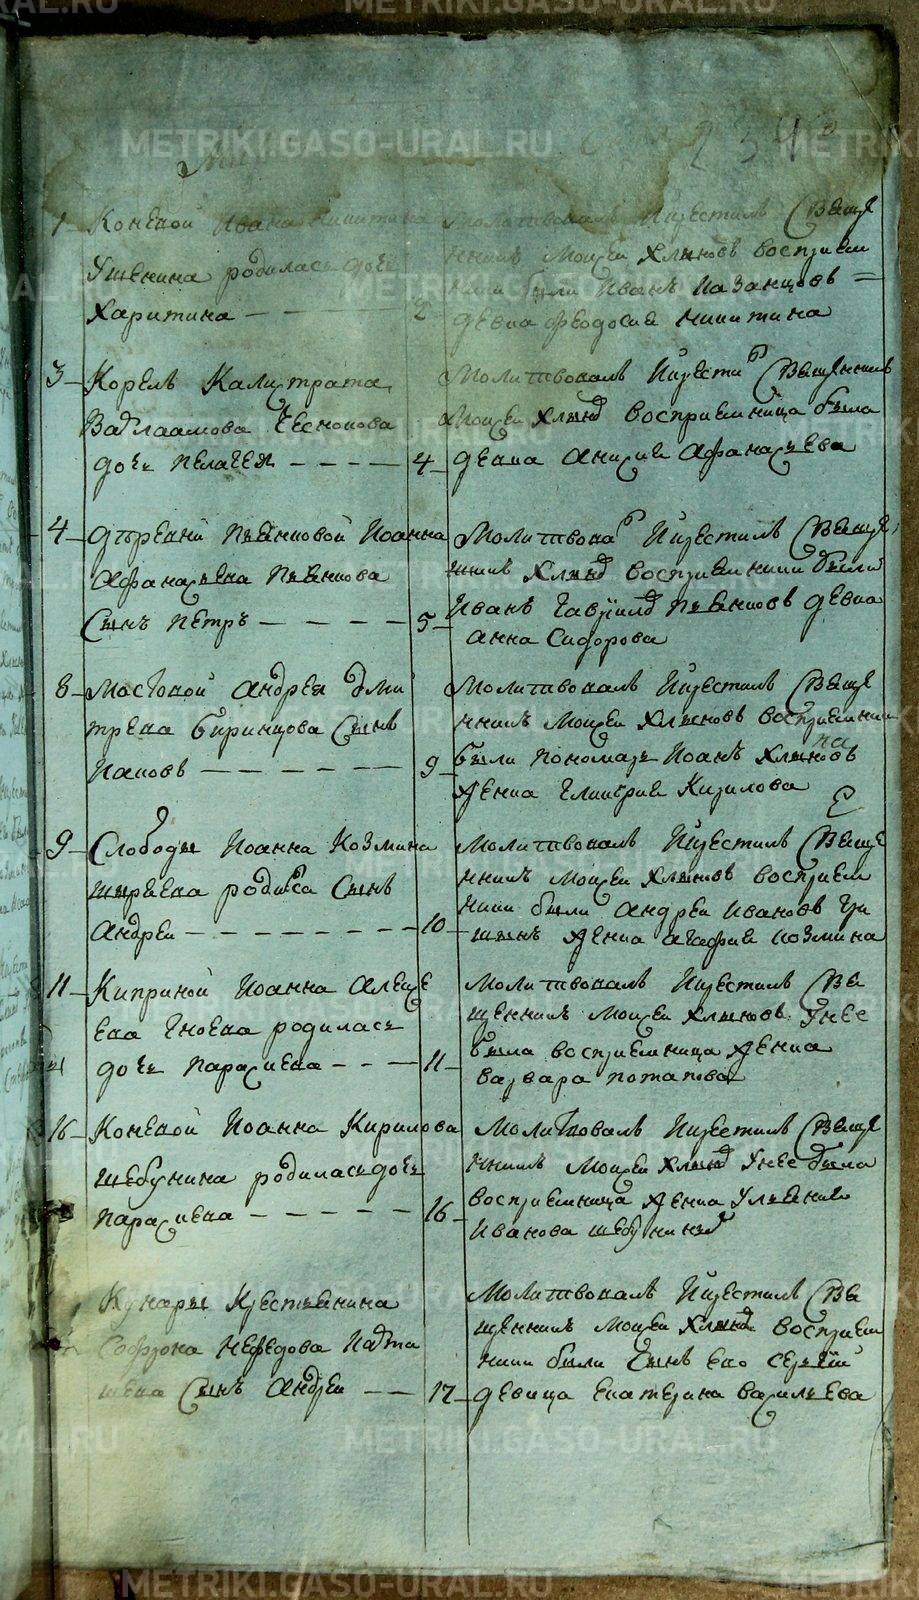 234
1 Коневой Иоана Никитина
Ушенина родилась дочь
Харитина 2
Молитвовалъ И крестилъ Свяще
нникъ Моисей Хлыновъ восприем
ники были Иванъ Казанцовъ
девка Феодосия Никитина
3 Корелъ Калистрата
Варлаамова Чеснокова
дочь Пелагея 4
Молитвовалъ И крести Священникъ
Моисей Хлыно восприемница была
девка Анисия Афанасьева
4 дъревни Пьянковой Иоанна
Афанасьева Пьянкова
Сынъ Петръ 5
Молитвова И крестилъ Свяще
нникъ Хлыно восприемники были
Иванъ Гаврило Пьянковъ девка
Анна Сидорова
8 Мостовой Андрея Дми
трева Сынъ
Иаковъ 9
Молитвовалъ И крестилъ Свяще
нникъ Моисей Хлыновъ восприемники
были пономарь Иоанъ Хлыновъ
девка Гликерия Кирилова
9 Слободы Иоанна Козмина
родился Сынъ
Андрей 10
Молитвовалъ И крестилъ Свяще
нникъ Моисей Хлыновъ восприем
ники были Андрей Ивановъ
девка Агафия Козмина
11 Киприной Иоанна Алексе
ева Гноева родилась
дочь Параскева 11
Молитвовалъ И крестилъ Свя
щенникъ Моисей Хлыновъ Унее
была восприемница девка
Варвара Потапова
16 Коневой Иоанна Кирилова
Шебунина родилась дочь
Параскева 16
Молитвовалъ И крестилъ Свяще
нникъ Моисей Хлыно Унее была
восприемница девка Ульяния
Иванова Шебунина
Кунары Крестьянина
Софрона Нефедова
Сынъ Андрей 17
Молитвовалъ И крестилъ Свя
щенникъ Моисей Хлыно восприем
ники были Сынъ ево Сергей
девица Екатерина Васильева
METRIKI.GASO-URAL.RU